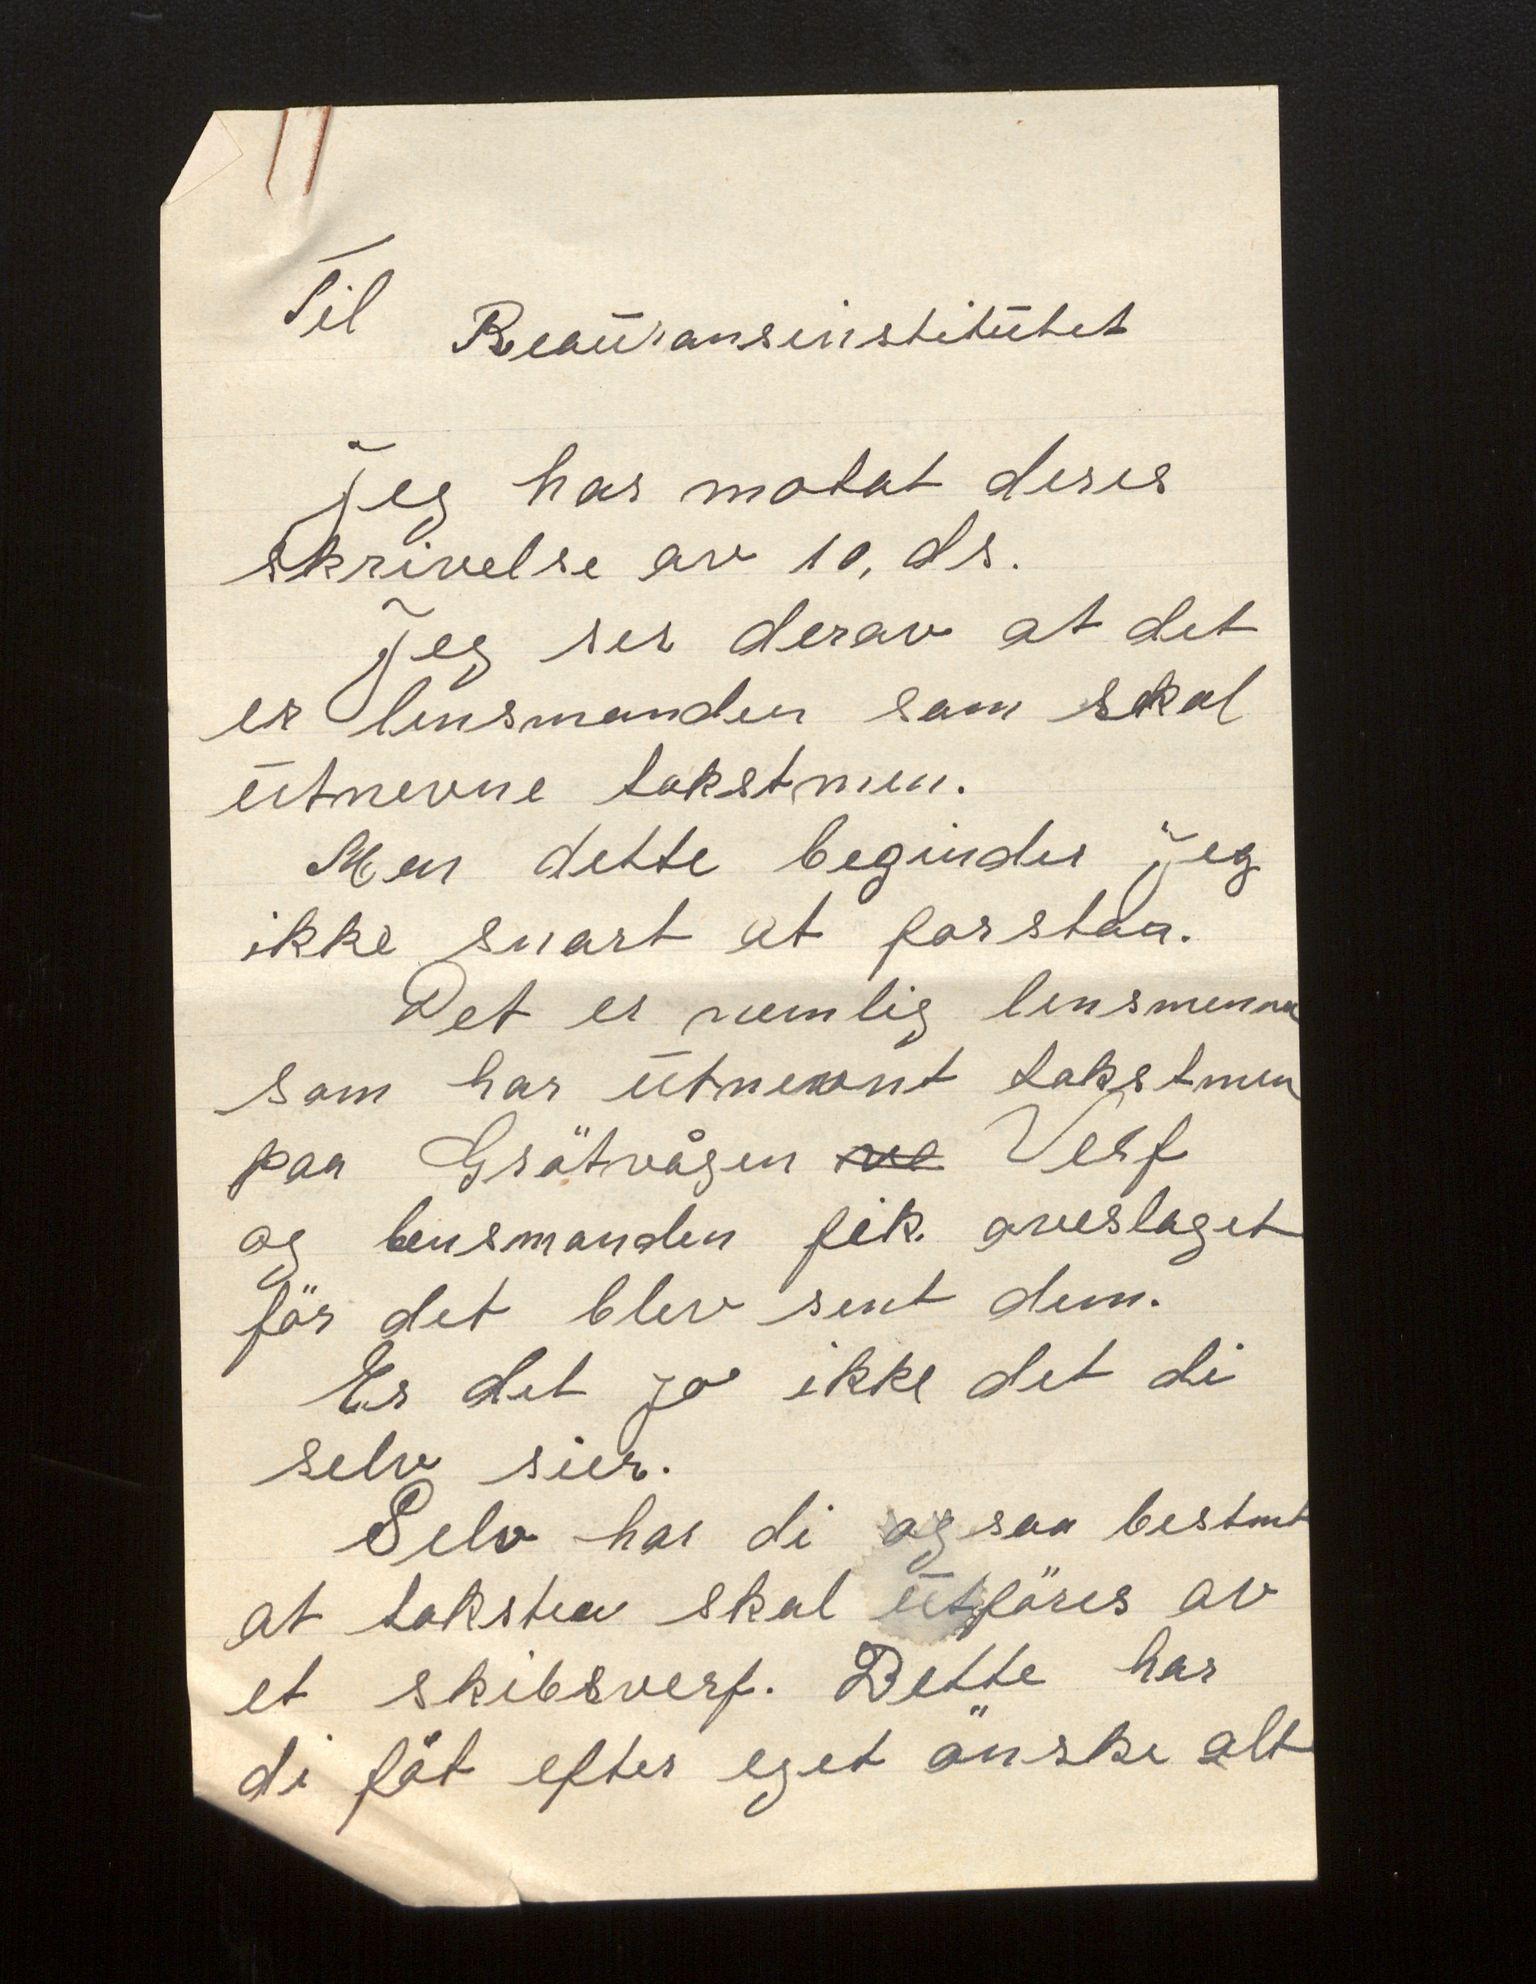 Til Reaüransinstitütet
Jeg har motat deres
skrivelse av 10, ds.
Jeg ser derav at det
er lensmanden som skal
ütnevne takstmen.
Men dette beginder jeg
ikke snart at forstaa.
Det er nemlig lensmenna
som har ütnevnt takstmen
paa Grötvågen ve Verf
og lensmanden fik overslaget
för det blev sent dem.
Er det jo ikke det di
selv sier.
Selv har di ogsaa bestmt
at taksten skal ütföres av
et skibsverf. Dette har
di fåt efter eget önske alt